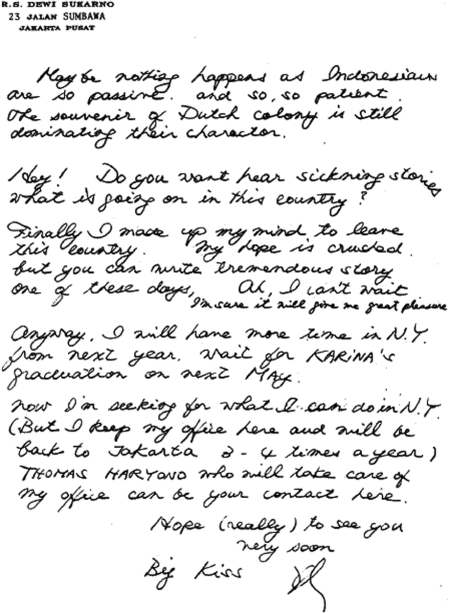 R.S. DEWI SUKARNO
23 JALAN SUMBAWA
JAKARTA PUSAT
Maybe nothing happens as Indonesian
are so passive. and so, so patient.
The souvenir of Dutch colony is still
dominating their charactor.
Hey! Do you want hear sickning stories
what is going on in this country?
Finally I made up my mind to leave
this country. My hope is crushed.
but you can write tremendous story
one of these days, Ah, I can't wait
I'm sure it will give me great pleasure
Anyway, I will have more time in N.Y.
from next year. wait for KARINA's
graduation on next MAY.
now I'm seeking for what I can do in N.Y.
(But I keep my office here and will be
back to Jakarta 3-4 times a year)
THOMAS HARYONO who will take care of
my office can be your contact here.
Hope (really) to see you
very soon
Big Kiss